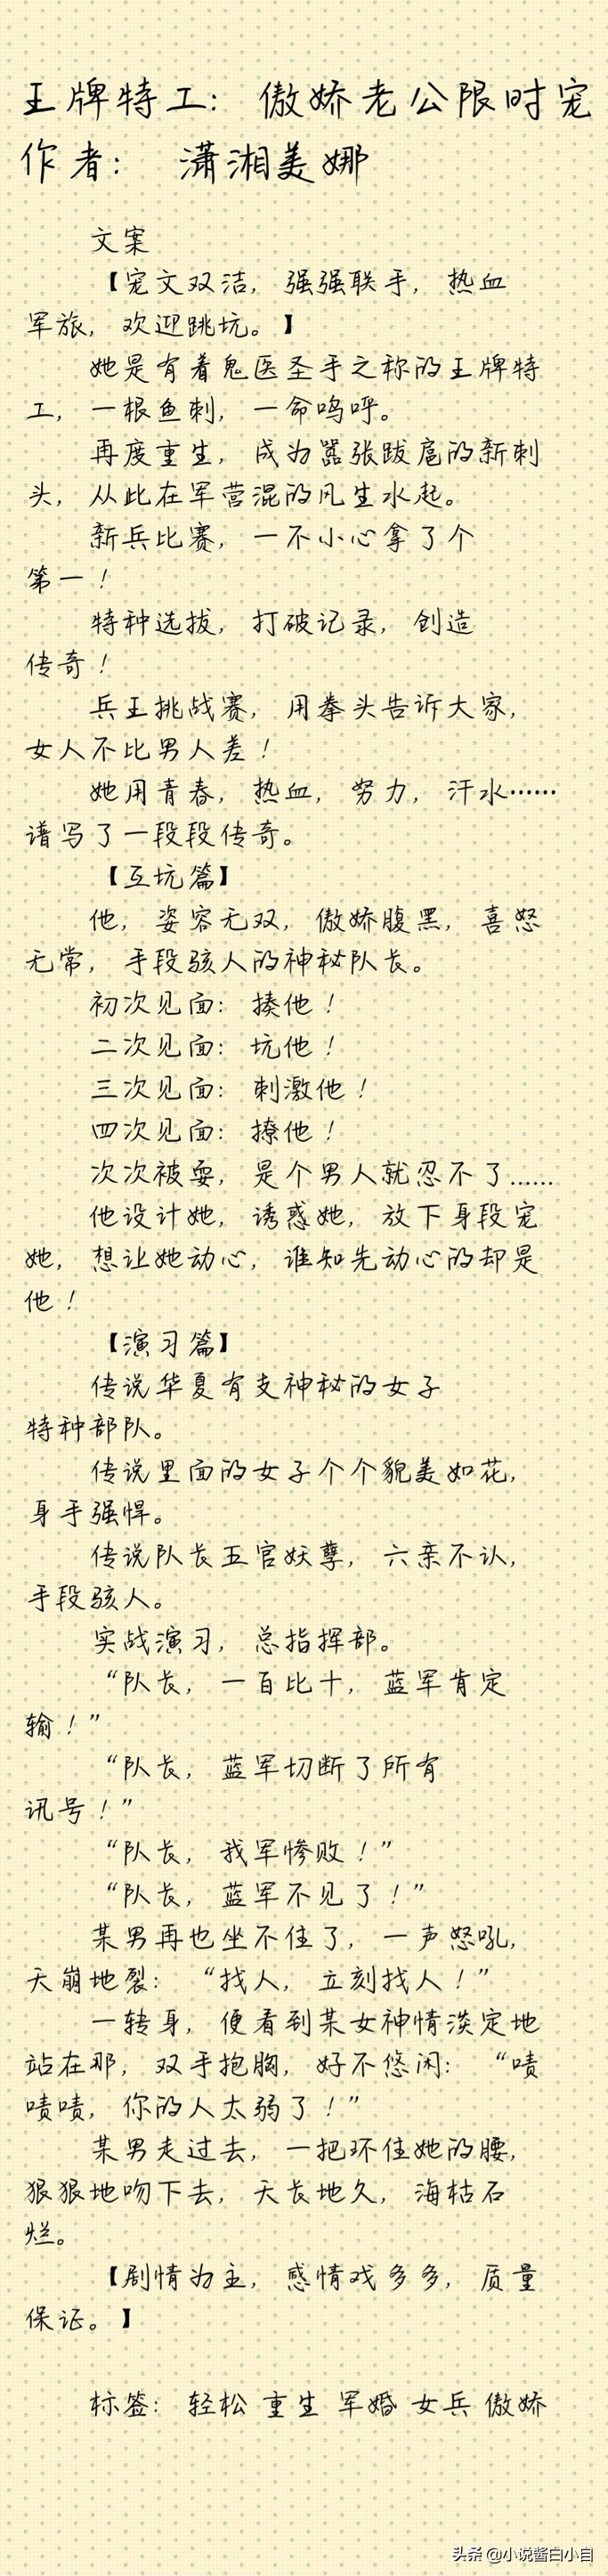 王牌特工：傲娇老公限时宠
作者： 潇湘美娜
文案
【宠文双洁，强强联手，热血
军旅，欢迎跳坑。】
她是有着鬼医圣手之称的王牌特
工，一根鱼刺，一命呜呼。
再度重生，成为嚣张跋扈的新刺
头，从此在军营混的风生水起。
新兵比赛，一不小心拿了个
第一！
特种选拔，打破记录，创造
传奇！
兵王挑战赛，用拳头告诉大家，
女人不比男人差！
她用青春，热血，努力，汗水……
谱写了一段段传奇。
【互坑篇】
他，姿容无双，傲娇腹黑，喜怒
无常，手段骇人的神秘队长。
初次见面：揍他！
二次见面：坑他！
三次见面：刺激他！
四次见面：撩他！
次次被耍，是个男人就忍不了……
他设计她，诱惑她，放下身段宠
她，想让她动心，谁知先动心的却是
他！
【演习篇】
传说华夏有支神秘的女子
特种部队。
传说里面的女子个个貌美如花，
身手强悍。
传说队长五官妖孽，六亲不认，
手段骇人。
实战演习，总指挥部。
“队长，一百比十，蓝军肯定
输！”
“队长，蓝军切断了所有
讯号！”
“队长，我军惨败！”
“队长，蓝军不见了！”
某男再也坐不住了，一声怒吼，
天崩地裂：“找人，立刻找人！”
一转身，便看到某女神情淡定地
站在那，双手抱胸，好不悠闲：“啧
啧啧，你的人太弱了！”
某男走过去，一把环住她的腰，
狠狠地吻下去，天长地久，海枯石
烂。
【剧情为主，感情戏多多，质量
保证。】
标签：轻松 重生 军婚 女兵 傲娇
头条 @小说酱白小白